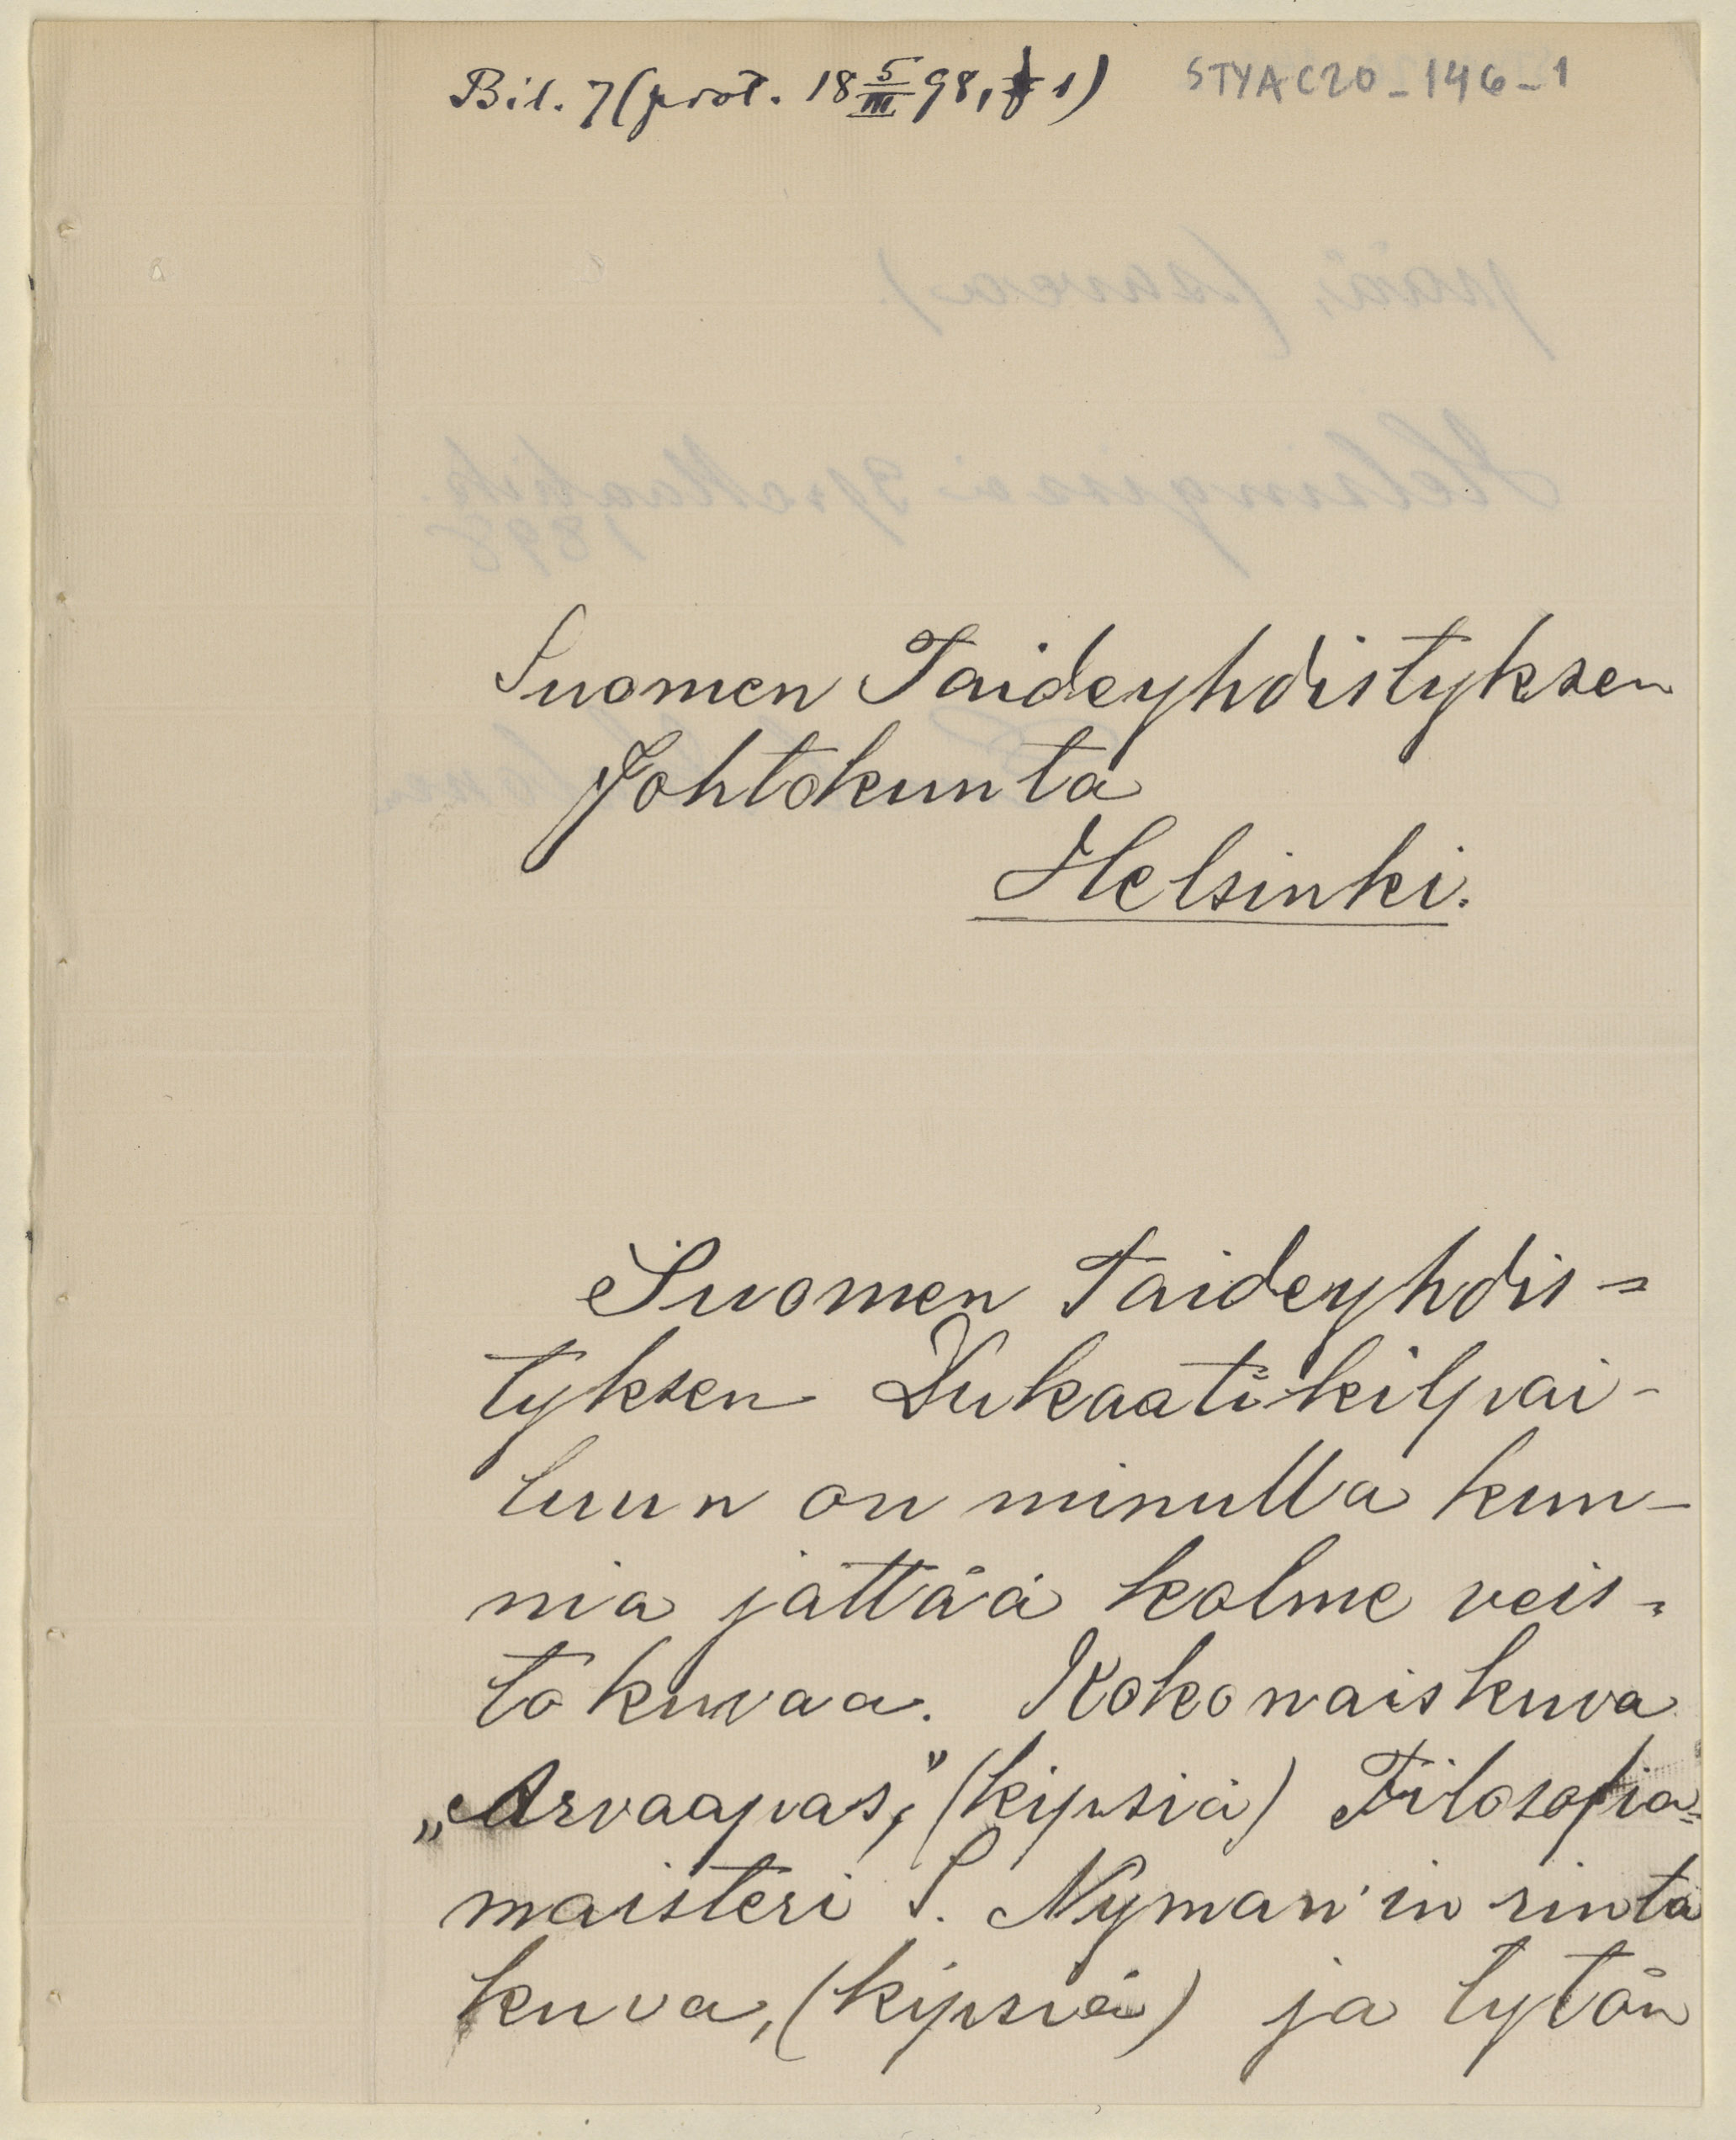 Bil. 7 (prot. 18 5/III 98, § 1)
STYA C20_146_1
Suomen Taideyhdistyksen
Johtokunta
Helsinki.
Suomen Taideyhdis=
tyksen Dukaatikilpai-
luun on minulla kun-
nia jättää kolme veis=
tokuvaa. Kokonaiskuva
„Arvaapas,” (kipsiä) Filosofia=
maisteri S. Nyman'in rinta
kuva, (kipsiä) ja tytön